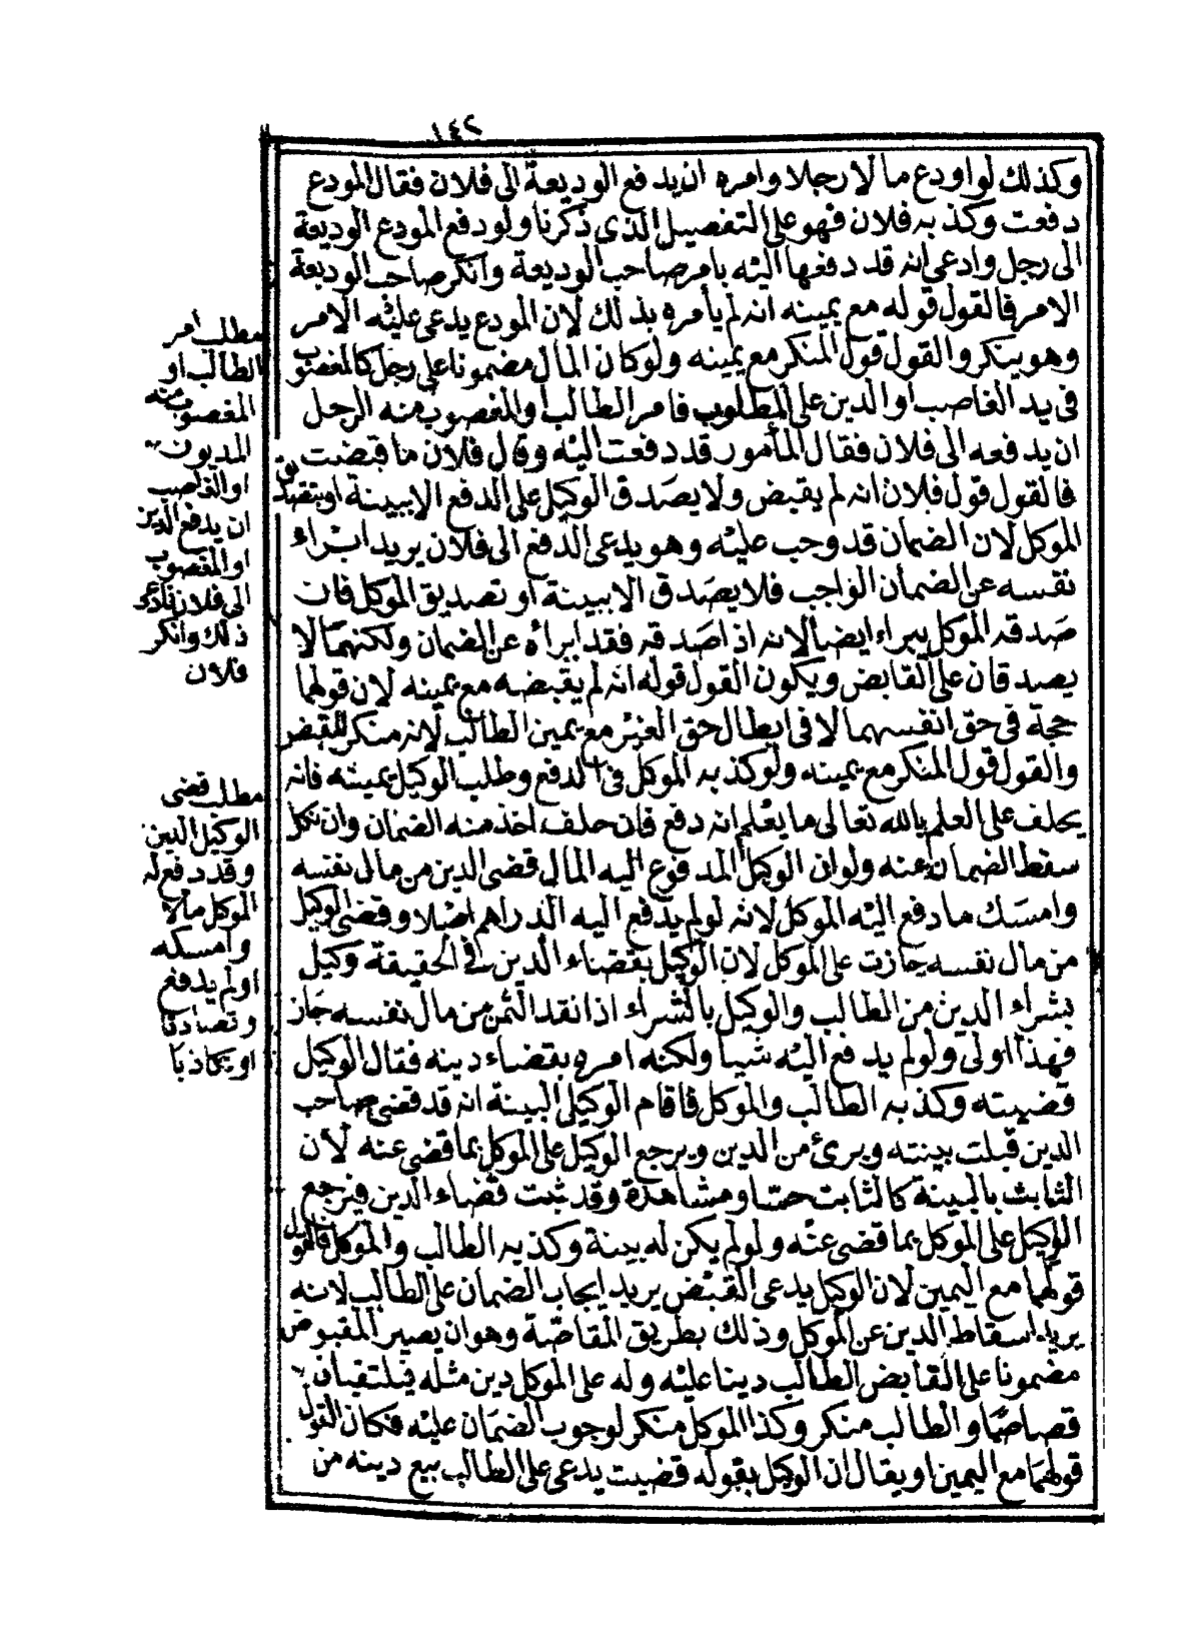 ١٤٢
وكذلك لو اودع مالا رجلا وامره ان يدفع الوديعة الى فلان فقال المودع
دفعت وكذبه فلان فهو على التفصيل الذى ذكرنا ولو دفع المودع الوديعة
الى رجل وادعى انه قد دفعها اليه بامر صاحب الوديعة وانكر صاحب الوديعة
الامر فالقول قوله مع يمينه انه لم يأمره بذلك لان المودع يدعى عليه الامر
وهو ينكر والقول قول المنكر مع يمينه ولو كان المال مضمونا على رجل كالمغصوب
فى يد الغاصب او الدين على المطلوب فامر الطالب او المغصوب منه الرجل
ان يدفعه الى فلان فقال المأمور قد دفعت اليه وقال فلان ما قبضت
فالقول قول فلان انه لم يقبض ولا يصدق الوكيل على الدفع الا ببينة او بتصديق
الموكل لان الضمان قد وجب عليه وهو يدعى الدفع الى فلان يريد ابراء
نفسه عن الضمان الواجب فلا يصدق الا ببينة او تصديق الموكل فان
صدقه الموكل يبراء ايضا لانه اذا صدقه فقد ابرأه عن الضمان ولكنهما لا
يصدقان على القابض ويكون القول قوله انه لم يقبضه مع يمينه لان قولهما
حجة فى حق انفسهما لا فى ابطال حق الغير مع يمين الطالب لانه منكر للقبض
والقول قول المنكر مع يمينه ولو كذبه الموكل فى الدفع وطلب الوكيل يمينه فانه
يحلف على العلم بالله تعالى ما يعلم انه دفع فان حلف اخذ منه الضمان وان نكل
سقط الضمان عنه ولو ان الوكيل المدفوع اليه المال قضى الدين من مال نفسه
وامسك ما دفع اليه الموكل لانه لو لم يدفع اليه الدراهم اصلا وقضى الوكيل
من مال نفسه جازت على الموكل لان الوكيل بقضاء الدين فى الحقيقة وكيل
بشراء الدين من الطالب والوكيل بالشراء اذا نقد الثمن من مال نفسه جاز
فهذا اولى ولو لم يدفع اليه شيأ ولكنه امره بقضاء دينه فقال الوكيل
قضيته وكذبه الطالب والموكل فاقام الوكيل البينة انه قد قضى صاحب
الدين قبلت بينته وبرئ من الدين ويرجع الوكيل على الموكل بما قضى عنه لأن
الثابت بالبينة كالثابت حسا ومشاهدة وقد ثبت قضاء الدين فيرجع
الوكيل على الموكل بما قضى عنه ولو لم يكن له بينة وكذبه الطالب والموكل فالقول
قولهما مع اليمين لان الوكيل يدعى القبض يريد ايجاب الضمان على الطالب لانه
يريد اسقاط الدين عن الموكل وذلك بطريق المقاصة وهو ان يصير المقبوض
مضمونا على القابض الطالب دينا عليه وله على الموكل دين مثله فيلتقيان
قصاصا والطالب منكر وكذا الموكل منكر لوجوب الضمان عليه فكان القول
قولهما مع اليمين او يقال ان الوكيل بقوله قضيت يدعى على الطالب بيع دينه من
مطلب امر
الطالب او
المغصوب منه
المديون
او الغاصب
ان يدفع الدين
او المغصوب
الى فلان فادعى
ذلك وانكر
فلان
مطلب قضى
الوكيل الدين
وقد دفع له
الموكل مالا
وامسكه
او لم يدفع
وتصادقا
او تكاذبا